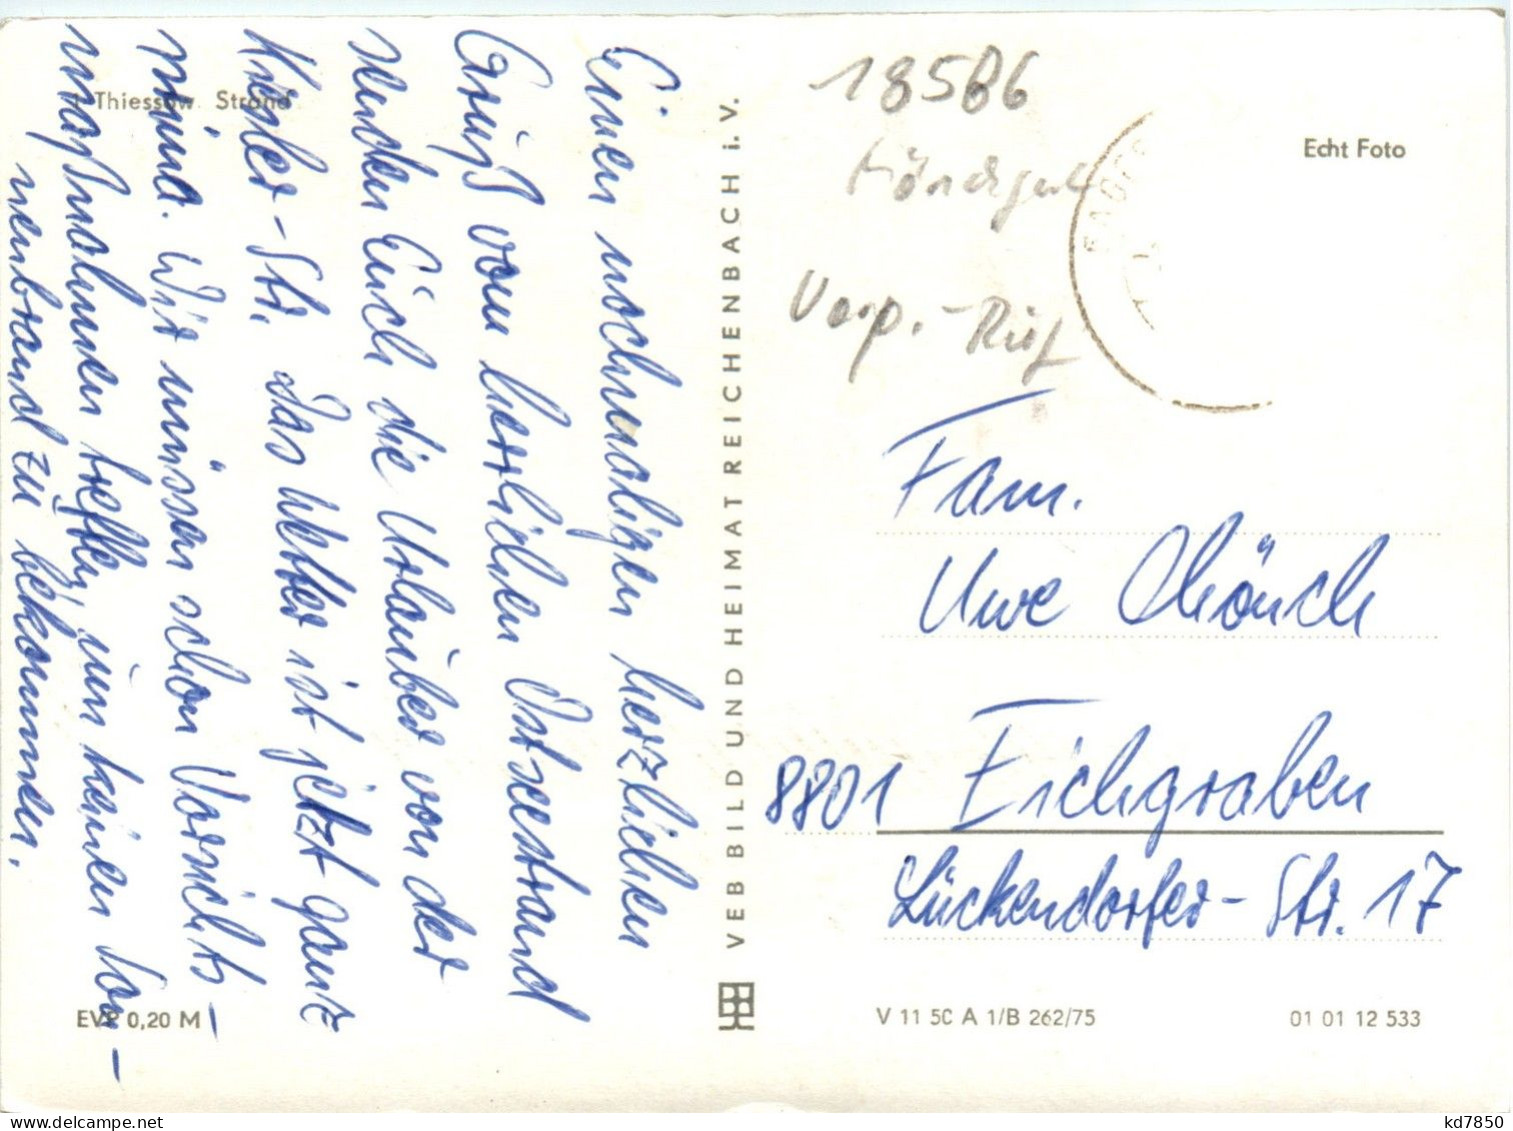 Einen nochmaligen herzlichen
Gruß vom herrlichen Ostseestrand
senden Euch die Urlauber von der
-Str. Das Wetter ist jetzt ganz
prima. Wir müssen schon Vorsichts-
maßnahmen treffen, um keinen Son-
nenbrand zu bekommen.
Thiessow Strand
EVP 0,20 M
VEB BILD UND HEIMAT REICHENBACH i. V.
18586
Mönchgut
Vorp.-Rüg
Echt Foto
Fam.
Uwe Mönch
8801 Eichgraben
Lückendorfer-Str. 17
V 11 50 A 1/B 262/75
01 01 12 533
kd7850